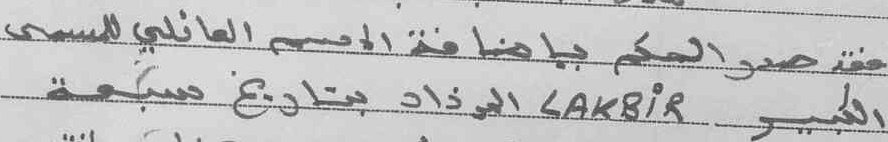 فقد صدر الحكم بإضافة الاسم العائلي للمسمى
الكبير LAKBIR المزداد بتاريخ سبعة